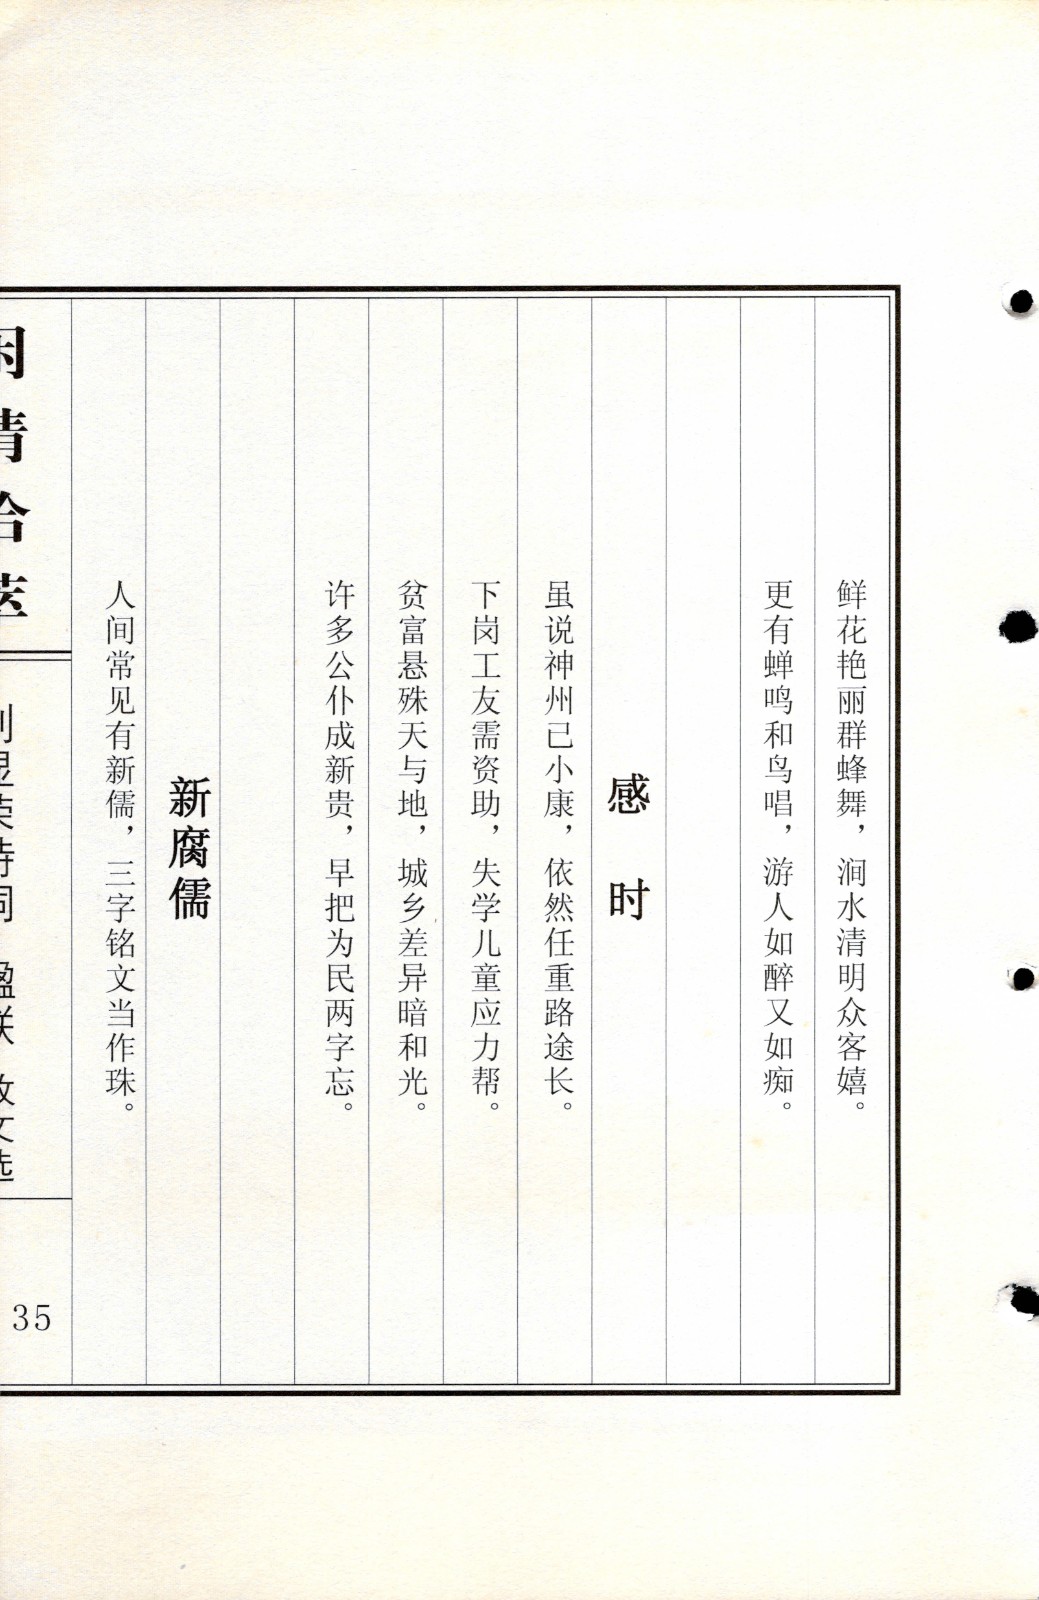 鲜花艳丽群蜂舞，涧水清明众客嬉。
更有蝉鸣和鸟唱，游人如醉又如痴。
感时
虽说神州已小康，依然任重路途长。
下岗工友需资助，失学儿童应力帮。
贫富悬殊天与地，城乡差异暗和光。
许多公仆成新贵，早把为民两字忘。
新腐儒
人间常见有新儒，三字铭文当作珠。
35